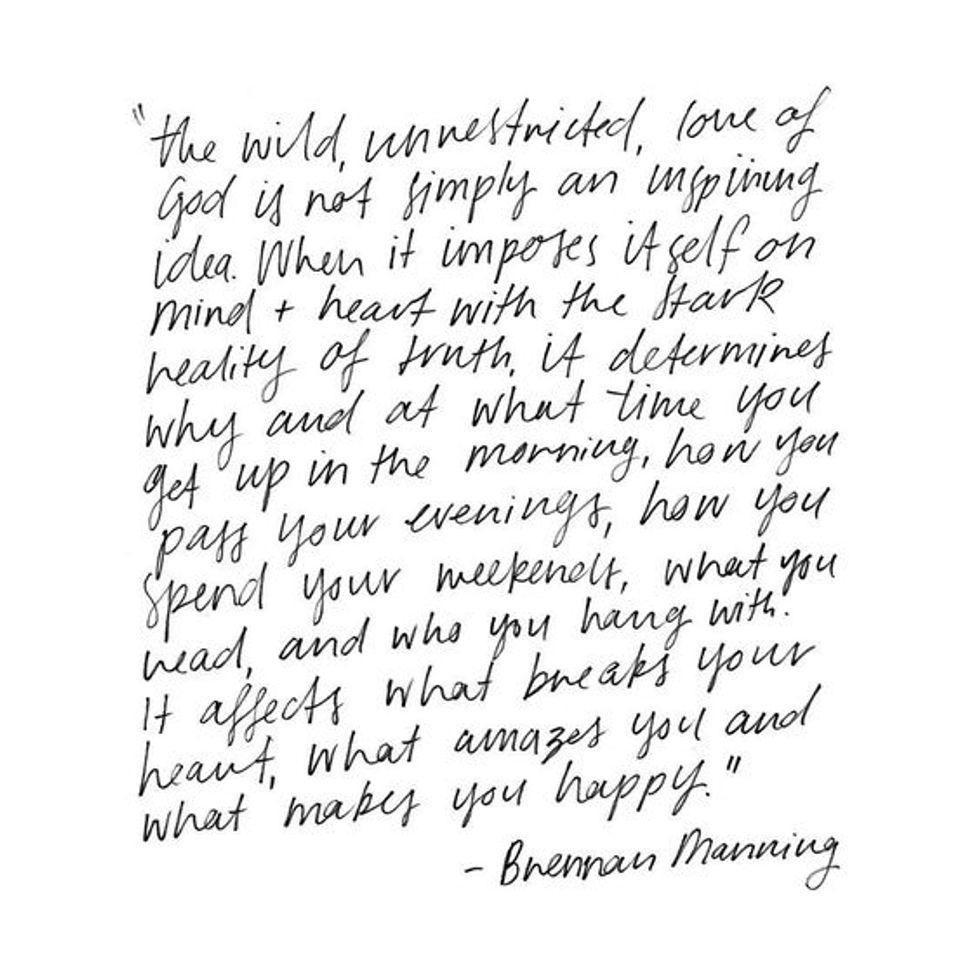 "the wild, unrestricted, love of
God is not simply an inspiring
idea. When it imposes itself on
mind + heart with the stark
reality of truth, it determines
why and at what time you
get up in the morning, how you
pass your evenings, how you
spend your weekends, what you
read, and who you hang with.
It affects what breaks your
heart, what amazes you and
what makes you happy."
- Brennan Manning